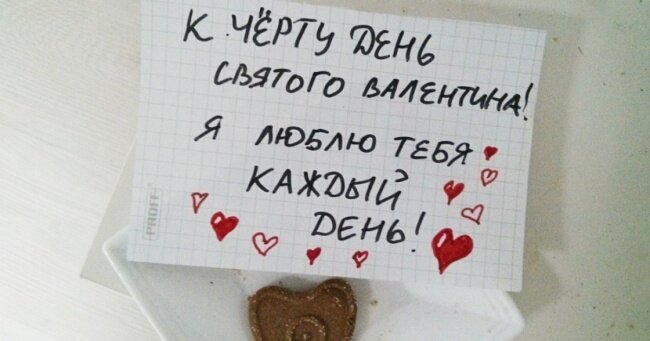 К ЧЁРТУ ДЕНЬ
СВЯТОГО ВАЛЕНТИНА!
Я ЛЮБЛЮ ТЕБЯ
КАЖДЫЙ
ДЕНЬ!
PROFF